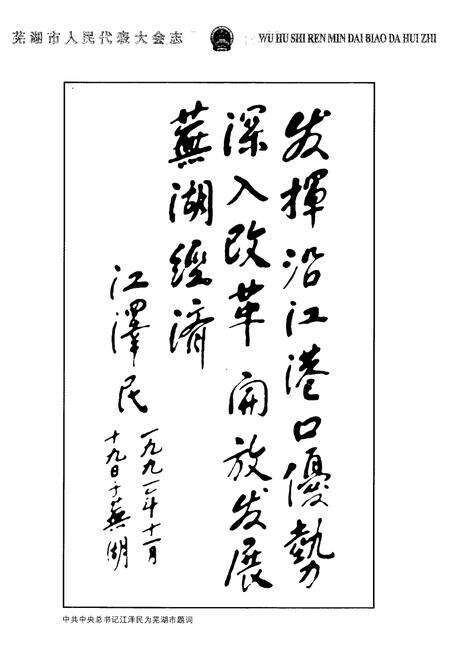 芜湖市人民代表大会志
WU HU SHI REN MIN DAI BIAO DA HUI ZHI
发揮沿江港口優勢
深入改革開放发展
蕪湖經濟
江澤民
一九九一年十一月
十九日于蕪湖
中共中央总书记江泽民为芜湖市题词